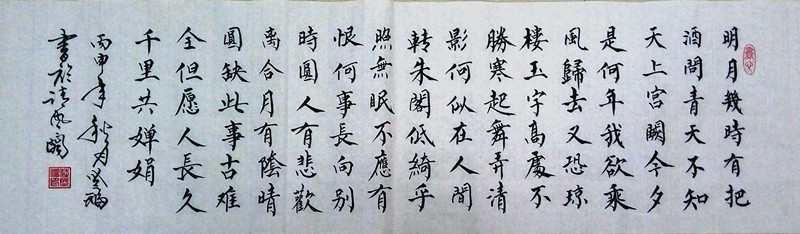 明月幾時有把
酒問青天不知
天上宮闕今夕
是何年我欲乘
風歸去又恐琼
楼玉宇高處不
勝寒起舞弄清
影何似在人間
轉朱閣低綺乎
照無眠不應有
恨何事長向別
時圓人有悲歡
离合月有陰晴
圓缺此事古难
全但愿人長久
千里共嬋娟
丙申年秋月
書於清風閣